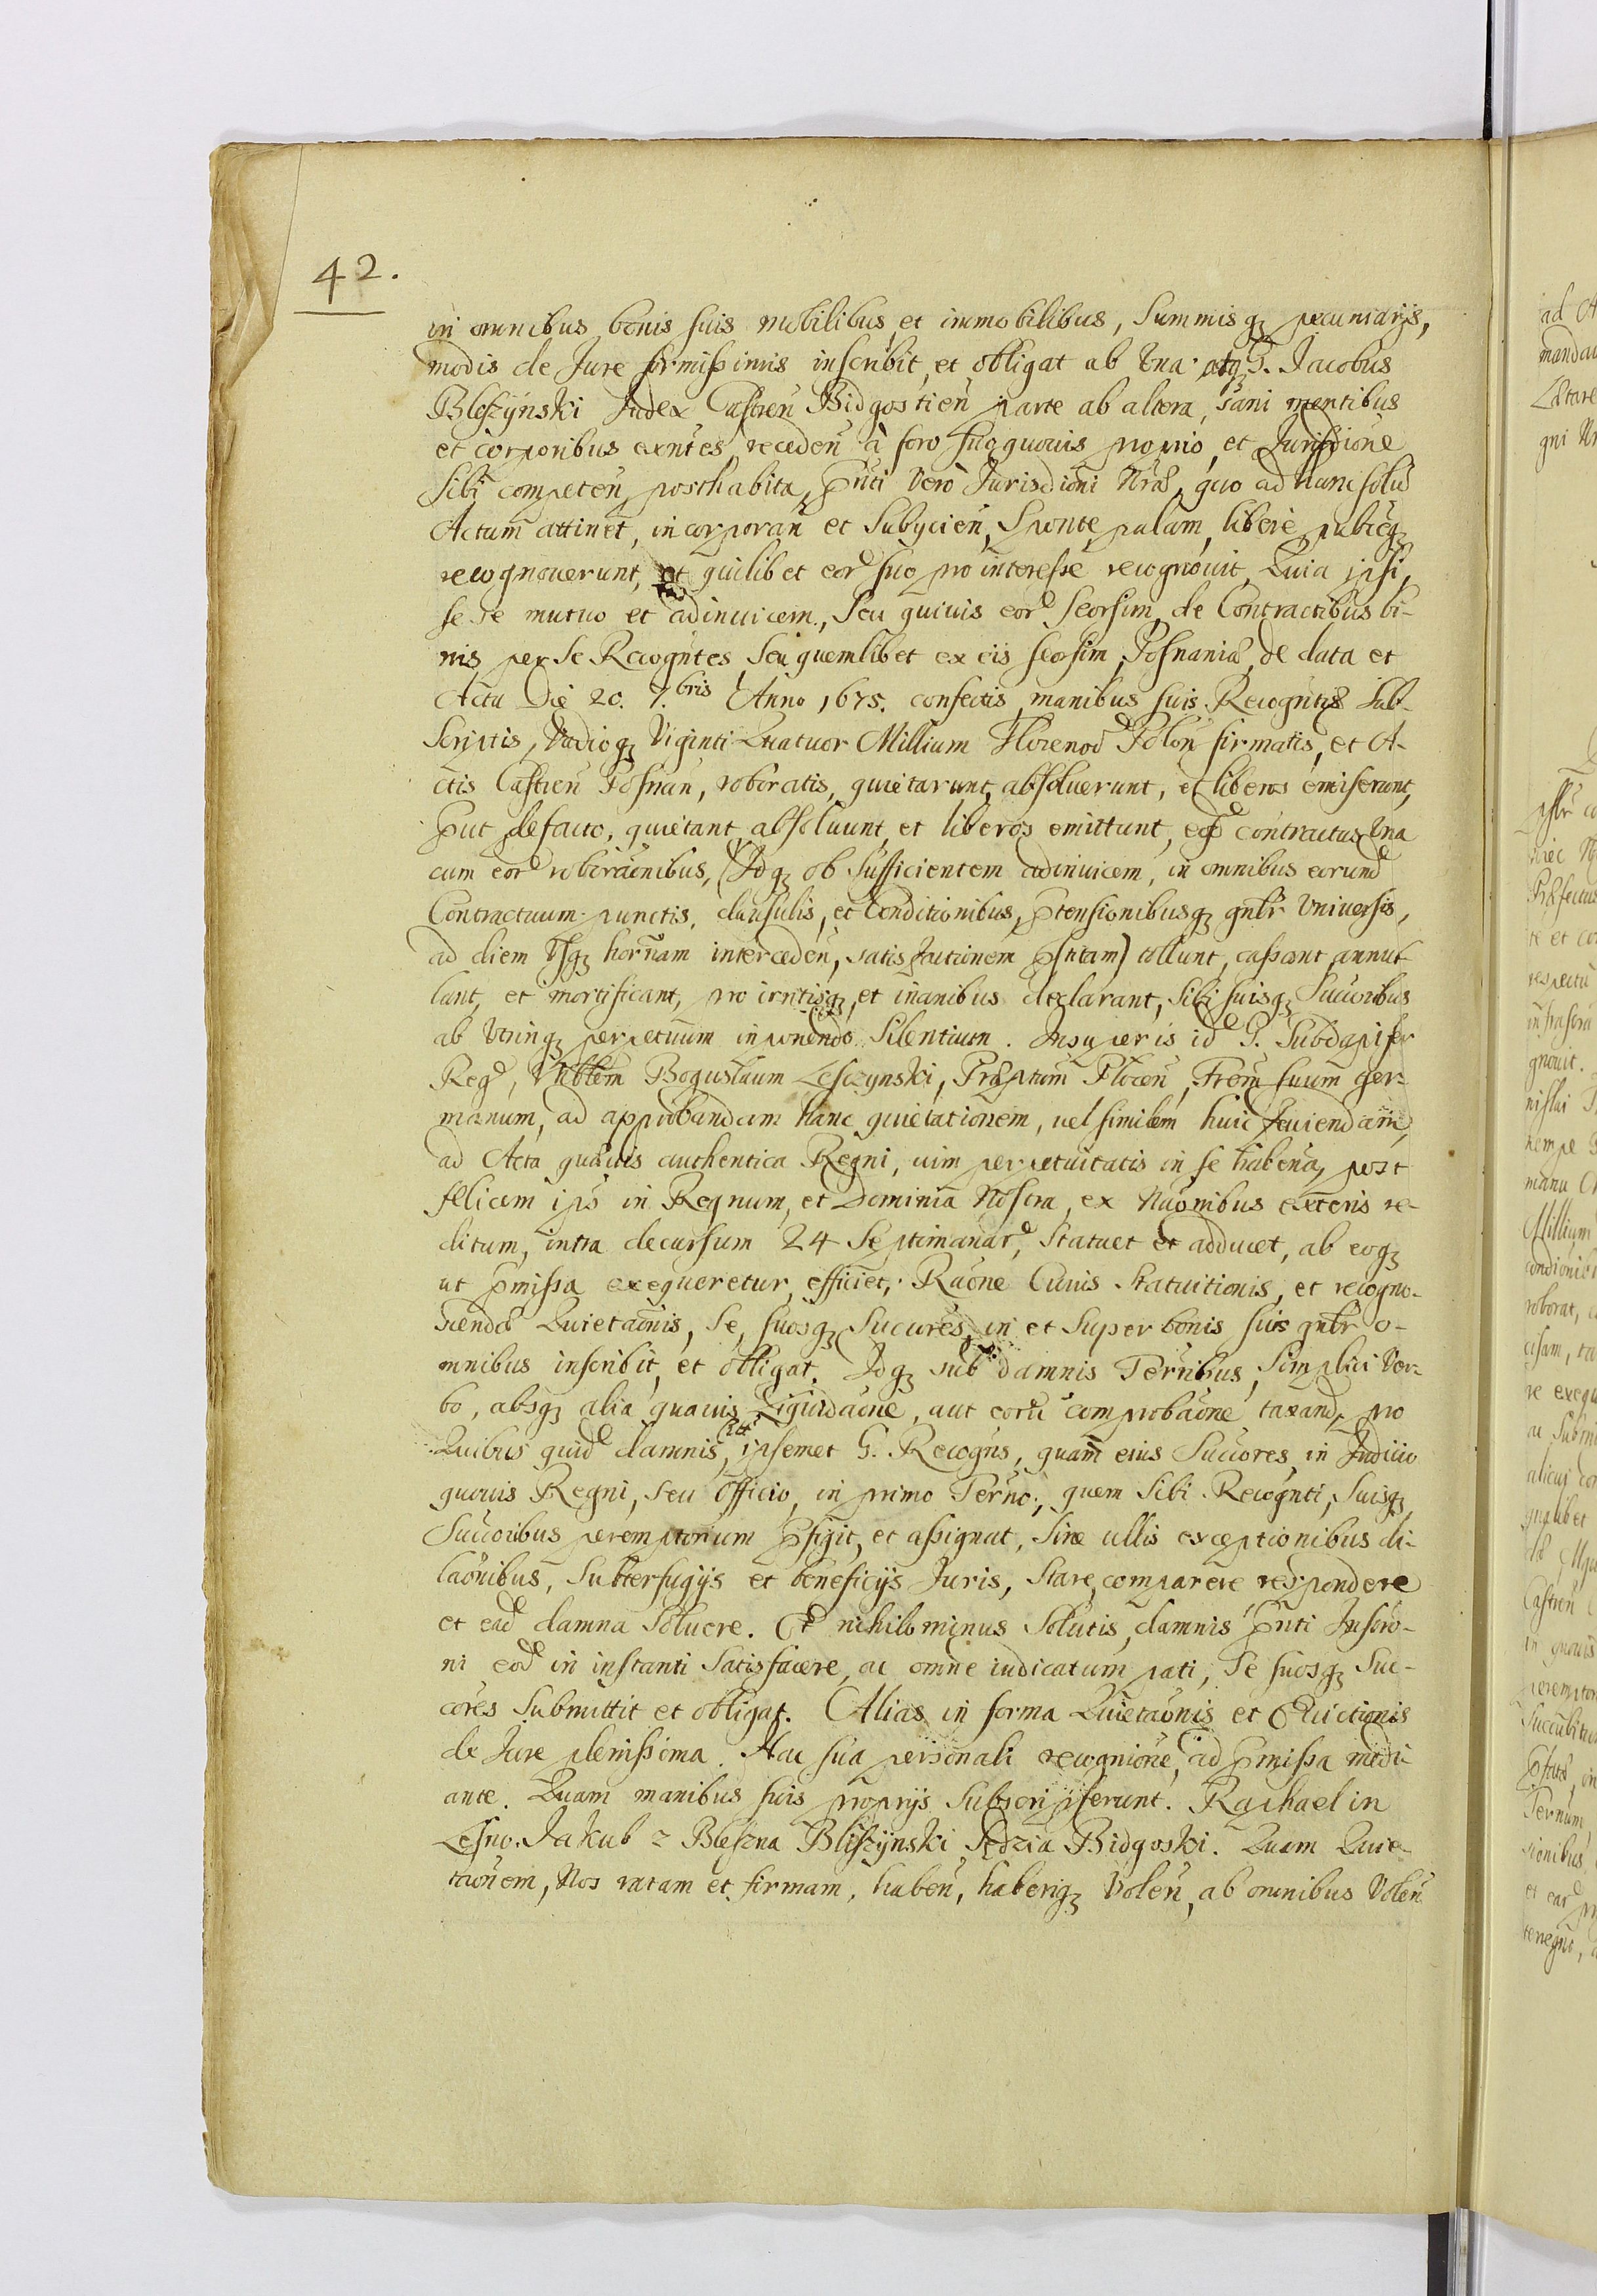 42.
in omnibus bonis suis mobilibus et immobilibus, Summisq3 pecuniarijs,
modis de Jure firmissimis inscribit, et obligat ab Una. atq3 G. Jacobus
Bleszynski Judex Castreñ Bidgostieñ parte ab altera, sani mentibus
et corporibus exñtes, recedeñ à foro suo quovis proprio, et Jurisdiõne
Sibi competeñ, posthabita, p̃nti verò Jurisdioni Nr̃æ, quo ad hunc solũ
Actum attinet, incorporañ et Subycieñ, Sponte, palam, liberè, publicèq3
recognoverunt, et quilibet eor̃ suo pro interesse recognovit, Quia ipsi,
se se mutuo et adinvicem, Seu quivis eor̃ seorsim, de Contractibus bi-
nis, per se Recogñtes, Seu quemlibet ex eis seorsim, Posnaniæ, de data et
Actu Die 20. 7.bris Anno 1675. confectis, manibus suis Recogñtiũ Sub-
Scriptis, Vadioq3 Viginti Quatuor Millium Florenor̃ Poloñ firmatis, et A-
ctis Castreñ Posnañ, roboratis, quietarunt, absoluerunt, et liberos emiserunt,
p̃ut defacto, quietant, absolvunt, et liberos emittunt, eosd̃ contractus Una
cum eor̃ roboraõnibus, Idq3 ob Sufficientem adinvicem, in omnibus eorund̃
Contractuum punctis, clausulis, et Conditionibus, p̃tensionibusq3 gñlr Universis,
ad diem Usq3 hornam intercedeñ, satisfactionem p̃stitam) tollunt, cassant, annul-
lant, et mortificant, pro irritisq3, et inanibus declarant, Sibi suisq3 Succõribus
ab Utrinq3 perpetuum inponendo Silentium. Insuper is id̃ G. Subdapifer
Regñ, Vr̃blem Boguslaum Lesczynski, Præptum Ploceñ, Frem suum ger-
manum, ad approbandam hanc quietationem, vel similem huic faciendam,
ad Acta quævis authentica Regni, vim perpetuitatis in se habeña, post
felicem ips̃ in Regnum, et Dominia Nostra, ex Naõnibus exteris re-
ditum, intra decursum 24 Septimanar̃, Statuet et adducet, ab eoq3
ut p̃missa exequeretur, efficiet, Raõne Cuius Statuitionis, et recogno-
scendæ Quietaõnis, Se, suosq3 Succores, in et Super bonis suis gñlr o-
mnibus inscribit, et obligat. Idq3 sub damnis Ternibus, Simplici Ver-
bo, absq3 alia quavis Liquidaõne, aut eorũ comprobaõne taxand̃, pro
Quibus quid̃ damnis, ipsemet G. Recogñs, quam eius Succores, in Judicio
quovis Regni, seu Officio, in primo Terño, quem Sibi Recogñti, Suisq3
Succoribus peremptorium p̃figit, et assignat, Sine ullis exceptionibus di-
laõnibus, Subterfugijs et beneficijs Juris, Stare, comparere, respondere
et ead̃ damna Solvere. Et nihilominus Solutis damnis p̃nti Inscro-
ni eod̃ in instanti Satisfacere, ac omne iudicatum pati, Se suosq3 Suc-
cores Submittit et obligat. Alias in forma Quietaõnis et Evictionis
de Jure plenissima. Hac sua personali recogniõne, ad p̃missa medi-
ante. Quam manibus suis proprijs Subscripserunt. Raphael in
Lesno. Jakub z Bleszna Bliszynski Sędzia Bidgoski. Quam Quie-
tionem, Nos ratam et firmam, habeñ, haberiq3 Voleñ, ab omnibus Voleñ